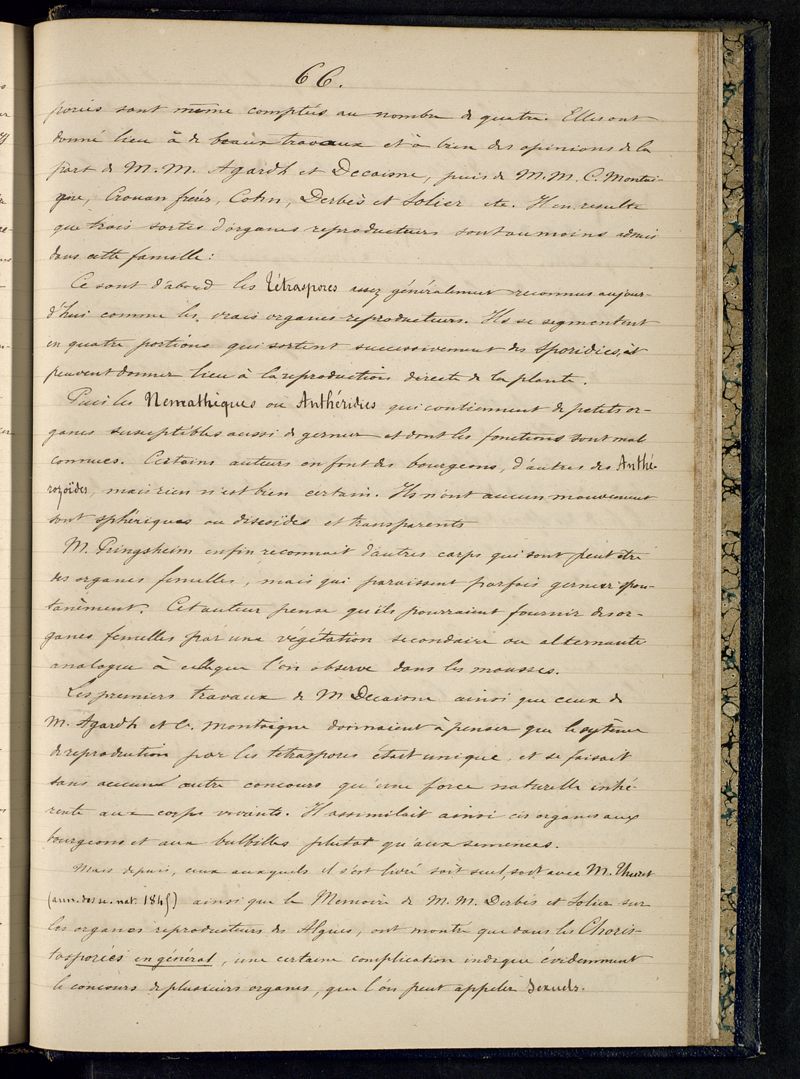 66.
poriés sont même comptés au nombre de quatre. Elles ont
donné lieu à de beaux travaux et à bien des opinions de la
part de M.M. Agardh et Decaisne, puis de M.M. C. Montai-
gne, Crouan frères, Cohn, Derbès et Solier etc. Il en resulte
que trois sortes d'organes reproducteurs sont au moins admis
dans cette famille:
Ce sont d'abord les Tétraspores assez généralement reconnus aujour-
d'hui comme les vrais organes reproducteurs. Ils se segmentent
en quatre portions qui sortent successivement des Sporidies, et
peuvent donner lieu à la reproduction directe de la plante.
Puis les Nemathèques ou Anthéridies qui contiennent de petits or-
ganes susceptibles aussi de germer et dont les fonctions sont mal
connues. Certains auteurs en font des bourgeons, d'autres des Anthé-
rozoïdes, mais rien n'est bien certain. Ils n'ont aucun mouvement
sont sphériques ou discoïdes et transparents
M. Pringsheim enfin reconnait d'autres corps qui sont peut être
des organes femelles, mais qui paraissent parfois germer spon-
tanèment. Cet auteur pense qu'ils pourraient fournir des or-
ganes femelles par une végétation secondaire ou alternante
analogue à celle que l'on observe dans les mousses.
Les premiers travaux de M Decaisne ainsi que ceux de
M. Agardh et C. Montaigne donnaient à penser que le sytème
de reproduction par les tétraspores était unique, et se faisait
sans aucun autre concours qu'une force naturelle inhé-
rente aux corps vivants. Il assimilait ainsi ces organes aux
bourgeons et aux bulbilles plutot qu'aux semences.
Mais depuis, ceux auxquels il s'est livré soit seul, soit avec M. Thuret
(ann. des sc. nat. 1845) ainsi que le Memoire de M.M. Derbès et Solier sur
les organes reproducteurs des Algues, ont montré que dans les Choris-
tosporiés en général, une certaine complication indique évidemment
le concours de plusieurs organes, que l'on peut appeler Sexuels.